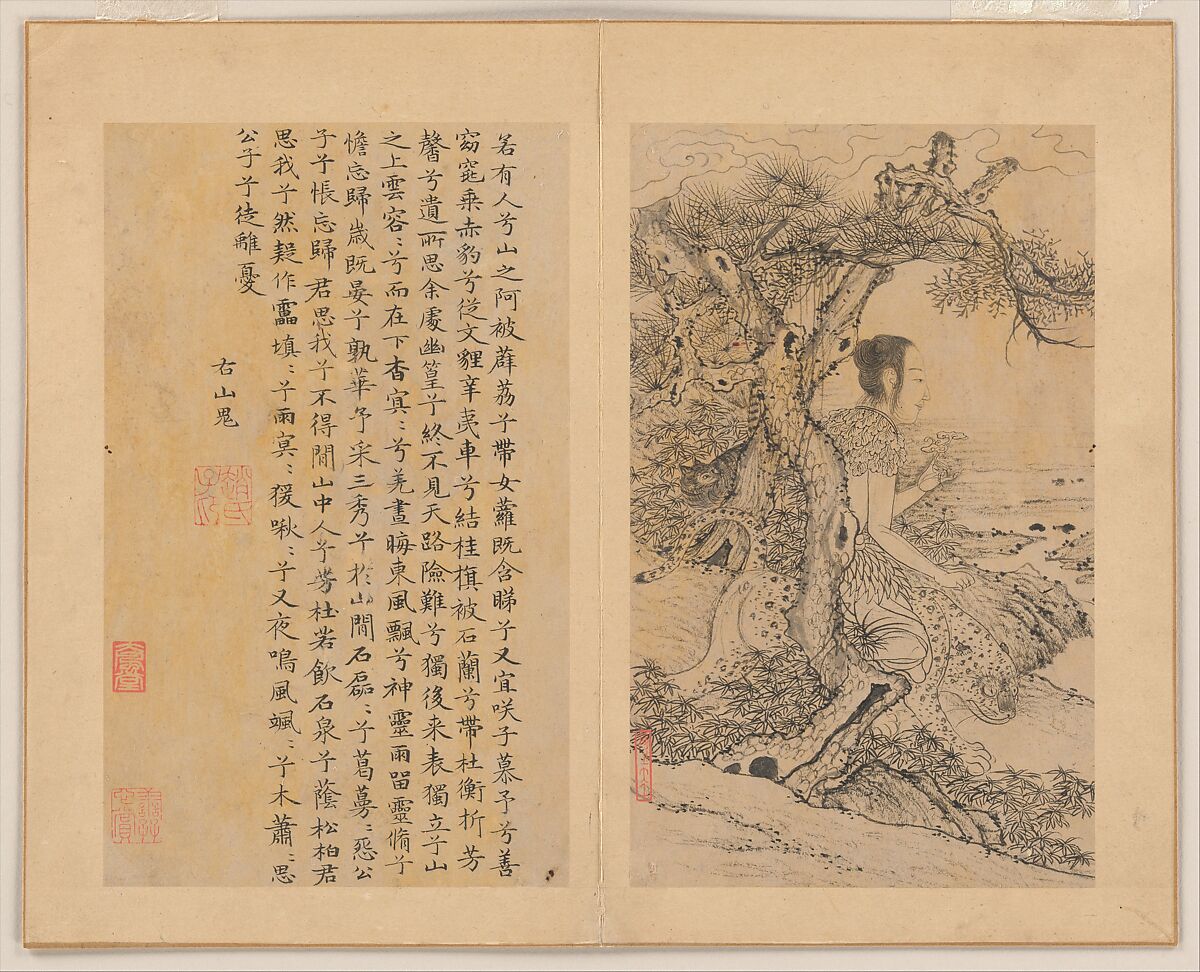 若有人兮山之阿被薜荔兮帶女蘿既含睇兮又宜咲子慕予兮善
窈窕乘赤豹兮從文貍辛荑車兮結桂旗被石蘭兮帶杜衡折芳
馨兮遺所思余處幽篁兮終不見天路險難兮獨後来表獨立兮山
之上雲容〻兮而在下杳冥〻兮羌晝晦東風飄兮神靈雨留靈脩兮
憺忘歸歲既晏兮孰華予采三秀兮於山間石磊〻兮葛蔓〻怨公
子兮悵忘歸君思我兮不得閒山中人兮芳杜若飲石泉兮蔭松柏君
思我兮然疑作靁填〻兮雨冥〻猨啾〻兮又夜鳴風颯〻兮木蕭〻思
公子兮徒離憂
右山鬼
趙氏子昂